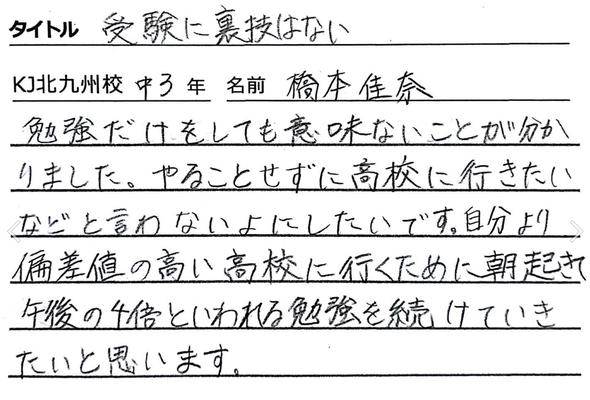 タイトル 受験に裏技はない
KJ北九州校 中3年 名前 橋本佳奈
勉強だけをしても意味ないことが分か
りました。やることせずに高校に行きたい
などと言わないよにしたいです。自分より
偏差値の高い高校に行くために朝起きて
午後の4倍といわれる勉強を続けていき
たいと思います。